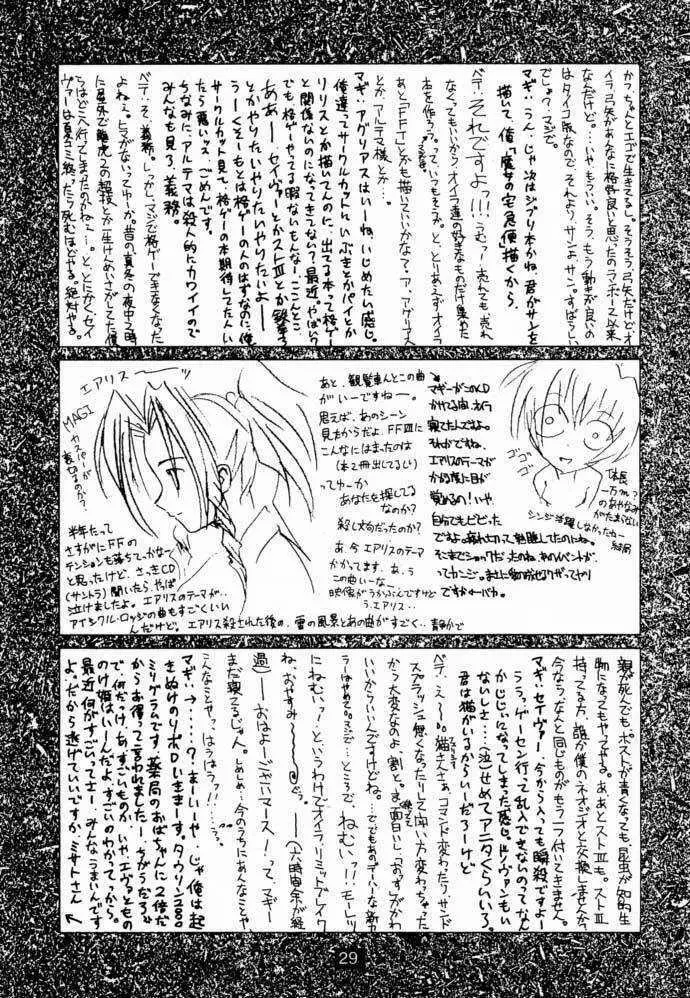 かつ、ちゃんとエゴで生きてるし。そうそう、弓矢だけど、オ
イラ弓矢があんなに格好良いと思ったのランボー以来
なんだけど。…いやもういい。そう、もう動きが良いの
はタイコ版なので。それより、サンよ、サン。すばらしい
でしょ?マジで。
マギ:うん。じゃ次はジブリ本かね。君がサンを
描いて、俺「魔女の宅急便」描くから。
ベテ:それですよ!!!うむっ!売れても売れ
なくてもいいからオイラ達の好きなものだけ集めた
本を作ろう。っていつもそうか。と、とりあえずオイラ
あと「FFT」とかも描いていいかな?ア、アグリアス
とか、アルテマ様とか。
マギ:アグリアスはいーね、いじめたい感じ。
俺達ってサークルカットにいぶきとかパイとか
リリスとか描いてんのに、出てる本って格ゲー
と関係ないのになってきてない?最近。やばい?
でも格ゲーやってる暇ないもんなー。ここんとこ。
あぁー、セイヴァーとかストⅢとか
とかやりたいやりたいやりたいよー
うーくそーもとは格ゲーの人のはずなのに、俺
サークルカット見て、格ゲーの本期待してた人い
たら
ごめんです。
ちなみに、アルテマは殺人的にカワイイので
みんなも見ろ。義務。
ベテ:そ、義務。しっかしマジで格ゲーできなくなった
よねぇ。ヒマがないってゆーか。昔の真冬の夜中2時
に屋外で龍虎の超技とか一生けんめいさがしてた俺
らはどこへ行ってしまったのかねぇー。と、とにかくセイ
ヴァーは夏コミ終ったら死ぬほどやる。絶対やる。
エアリス→
MAGI
カスパーが
裏切るのか?
あと、観覧車んとこの曲
がいーですねー。
思えば、あのシーン
見たからだよ、FFⅦに
こんなにはまったのは
(本2冊出してるし)
ってゆーか
あなたを探してる
なのか?
殺し文句だったのか?
あ、今エアリスのテーマ
かかってます。あ、う
この曲いーなー
映像がうかぶんですけど
う、エアリス…
マギーがこのCD
かけてる間、オイラ
寝てたんですよ。
それがですね、
エアリスのテーマが
かかる度に目が
覚めるの!いや、
自分でもビビった
ですよ。疲れ切って熟睡してたのにね。
そこまでショックだったのね、あのイベントが。
ってカンジ。
ですかーバカ。
ゴゴゴ
シンジ活躍しなかったねー
結局
体長
一万m?
のあやなみ
がたまがない
半年たって
さすがにFFの
テンションも落ちてっかなぁ
と思ったけど、さっきCD
(サントラ)聞いたら、やば
泣けましたよ。エアリスのテーマが…
アイシクル・ロッジの曲もすごくいい
んだけど。エアリス殺された後の、雪の風景とあの曲がすごく…静かで
親が死んでも、ポストが青くなっても、昆虫が知的生
物になってもやってやる。ああとストⅢも。ストⅢ
持ってる方、誰か僕のネオジオと交換しませんか?
今ならなんと同じものがもう一つ付いてきません。
マギ:セイヴァー、今から入っても瞬殺ですよー
うう。ゲーセン行って乱入できないのってなん
かじじいになってしまった感じ。ドノヴァンもい
ないしさ…(泣)せめてアニタくらいいろ。
君は猫がいるからいーだろーけど
ベテ:え〜。猫さんさぁ、コマンド変わったりサンド
スプラッシュ無くなったりして闘い方変わっちゃった
から大変なのよ、割と。ま、面白いし、「おす」がかわ
いいからいいんですけどね。…でもあのデハーな新カ
ラーはやめてっ。マジで。…ところで、ねむいっ!!モーレツ
にねむいっ!というわけでオイラリミットブレイク
ね、おやすみ〜。…(六時間余が経
過)—おはよーごじゃいマース!…って、マギー
まだ寝てるじゃん。しめしめ…今のうちにあんなことや
こんなことやっ。はうはうっ!!…
マギ:→……?まーいーや、じゃ俺は起
きぬけのリポDいきまーす。タウリン2000
ミリグラムです!薬局のおばちゃんに「2倍だ
からお得ッ」て言われましたー。ちがうだろ。
で、何だっけ、あ、すごいものか、いやエヴァともの
のけ姫はいーんだよ、すごいのわかってっから。
最近、何がすごいってさー、みんなうまいんです
よ。だから逃げていいですか、ミサトさん
29